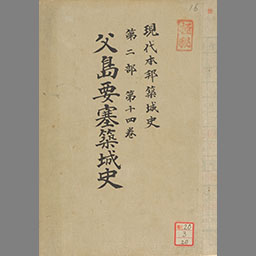 現代本邦築城史
第二部 第十四巻
父島要塞築城史